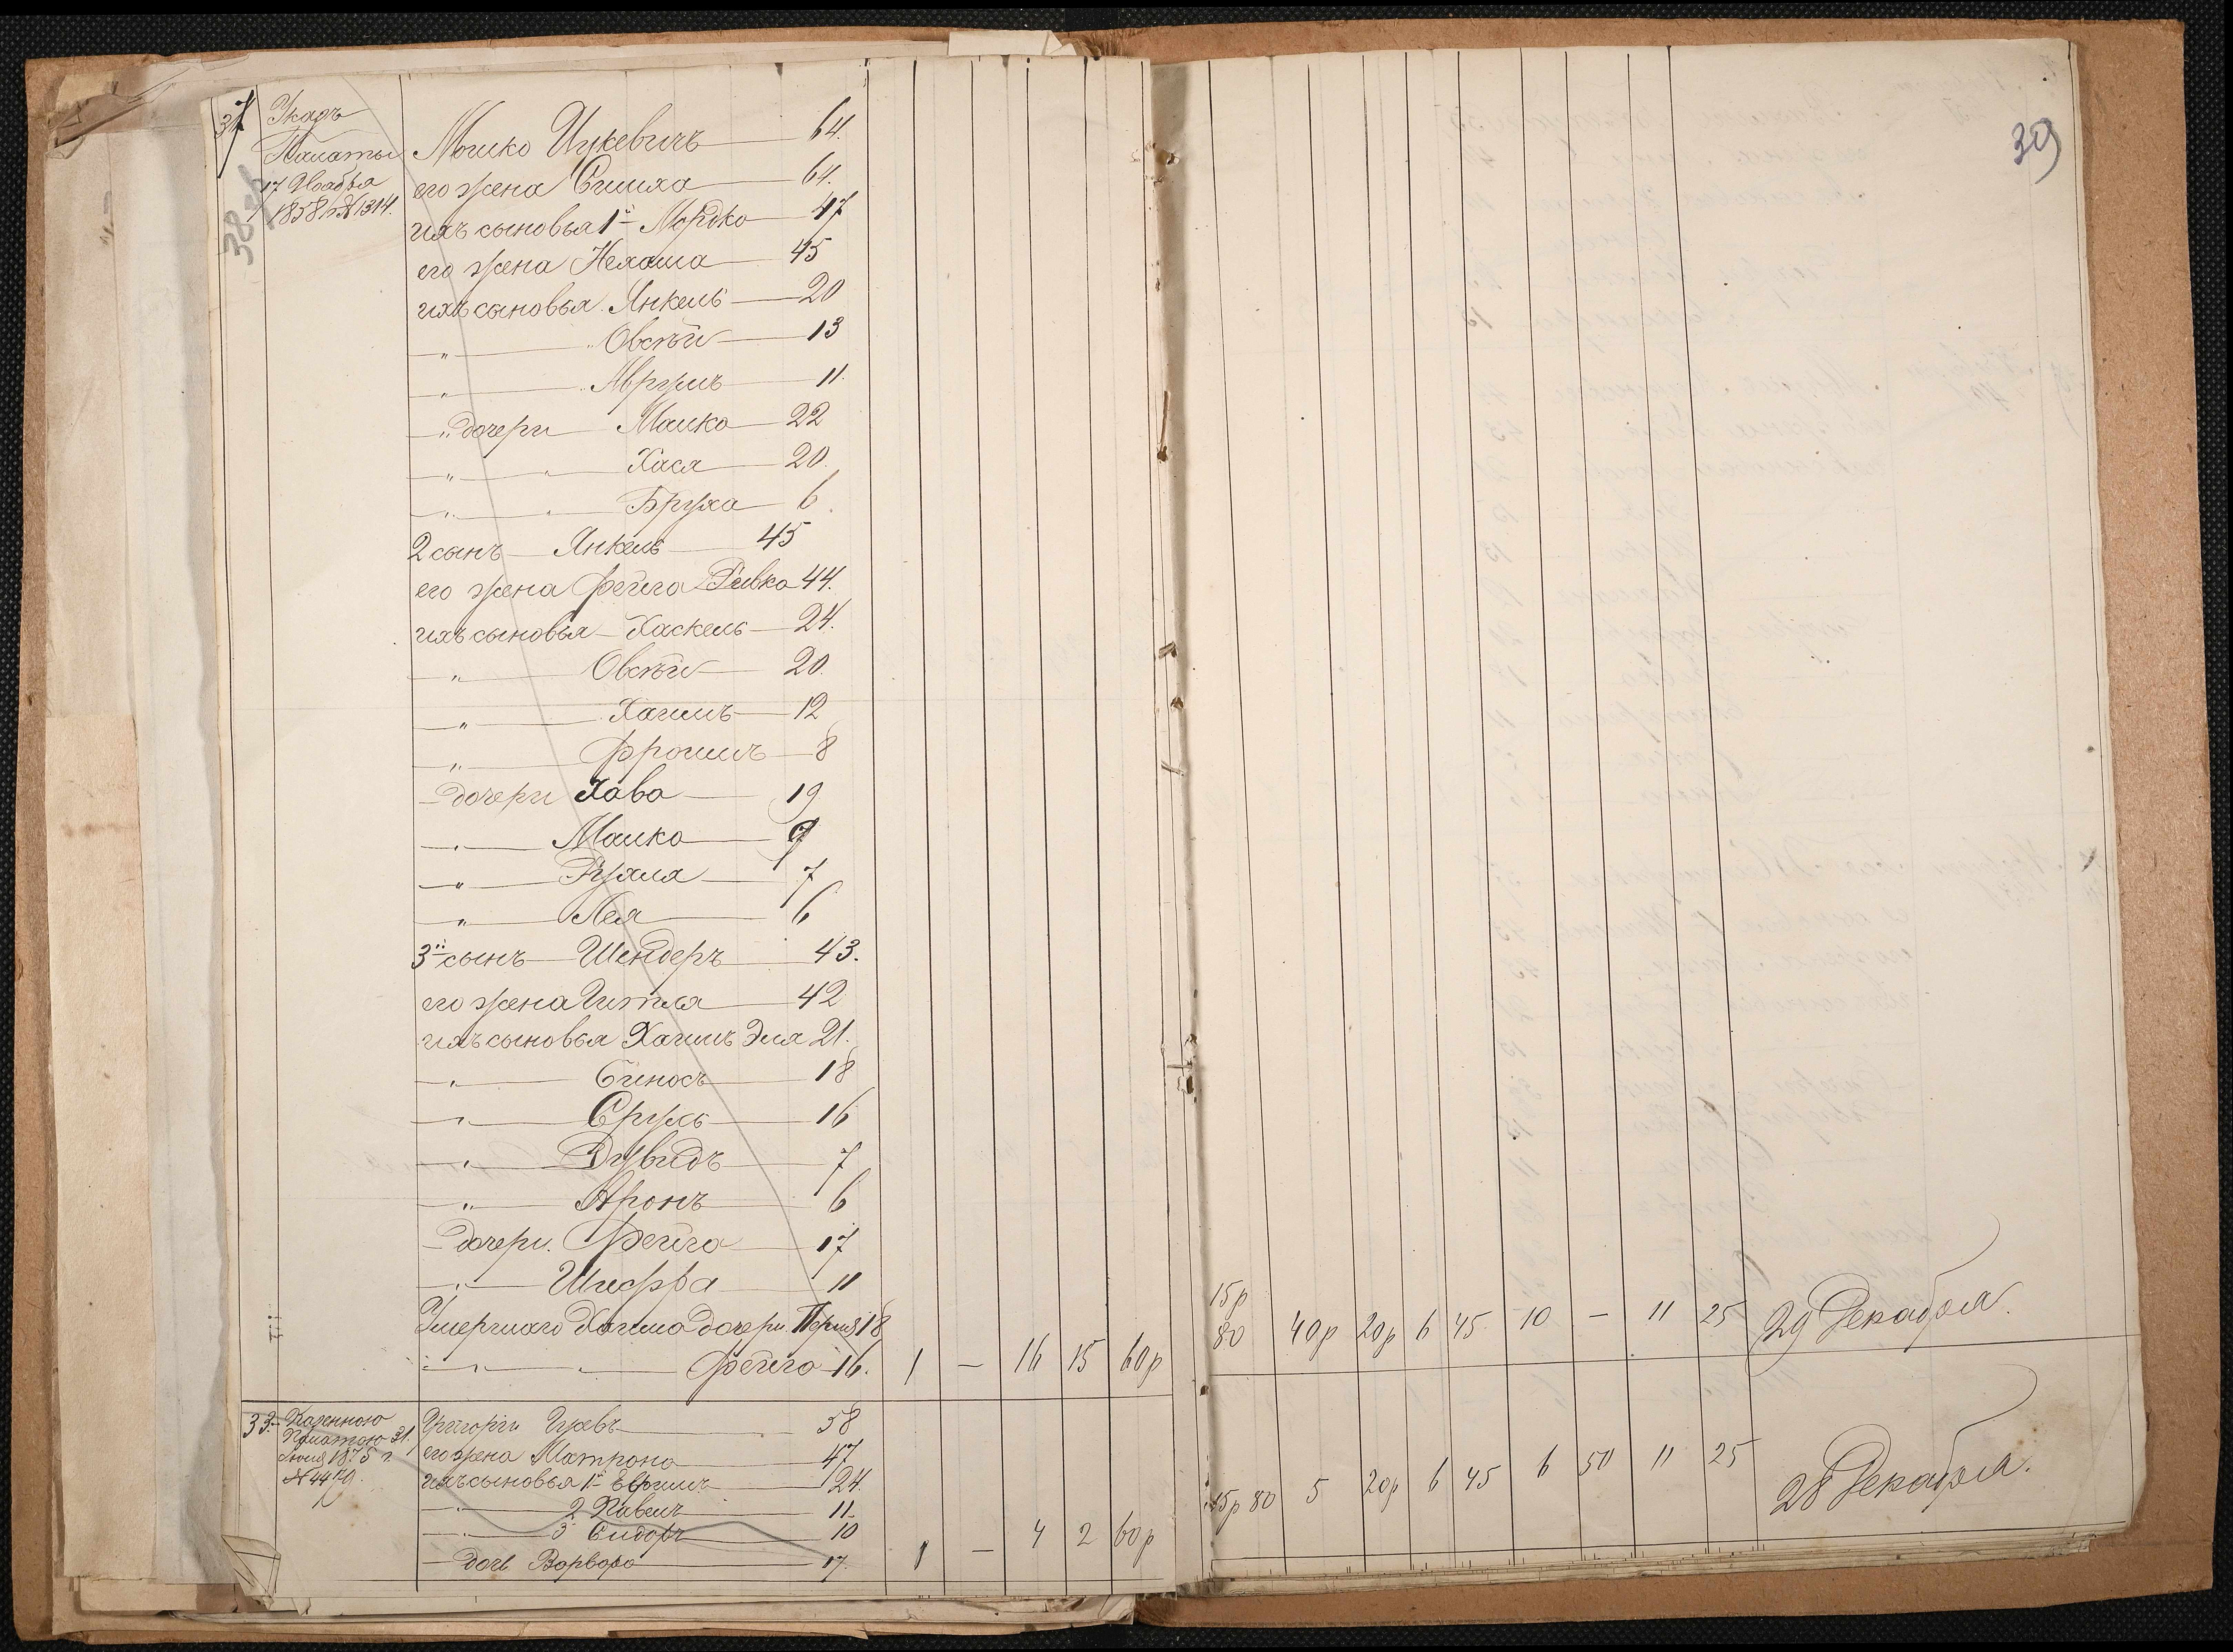 37
Указъ
Палаты
17 Ноября
1858 № 1314.
38об
Мошко Ицкевичъ 64.
его жена Симха 64.
ихъ сыновья 1й Мордко 47
его жена Нехама 45
ихъ сыновья Янкель 20
" Овсѣй 13
" Аврумъ 11.
" дочери Малка 22
" " Хася 20.
" " Бруха 6.
2 сынъ Янкель 45
его жена Фейга Ривка 44.
ихъ сыновья Хаскель 24.
" Овсѣй 20.
" Хаимъ 12
" Фроимъ 8
дочери Хава 19
" Малка 9
" Рухля 7
" Лея 6
3й сынъ Шендеръ 43.
его жена Гитля 42
ихъ сыновья Хаимъ Эля 21.
" Биносъ 18
" Сруль 16
" Дувидъ 7
" Аронъ 6
дочери Фейга 17
" Шифра 11
Умершаго Хаима дочери Перля 18
" " Фейга 16. 1 — 16 15 60р
33. Казенною
Палатою 31.
Июля 1875 г.
№ 4479.
Григорій 58
его жена Матрона 47
ихъ сыновья 1й Ефимъ 24.
" 2 Павелъ 11.
" 3 Сидоръ 10
дочь Варвара 17. 1 — 4 2 60р
39
15р
80 40р 20р 6 45 10 — 11 25 29 Декабря.
15р 80 5 20р 6 45 6 50 11 25 28 Декабря.